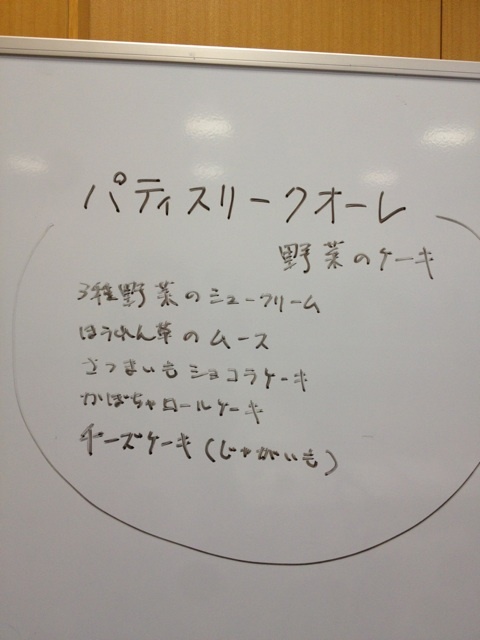 パティスリークオーレ
野菜のケーキ
3種野菜のシュークリーム
ほうれん草のムース
さつまいもショコラケーキ
かぼちゃロールケーキ
チーズケーキ(じゃがいも)